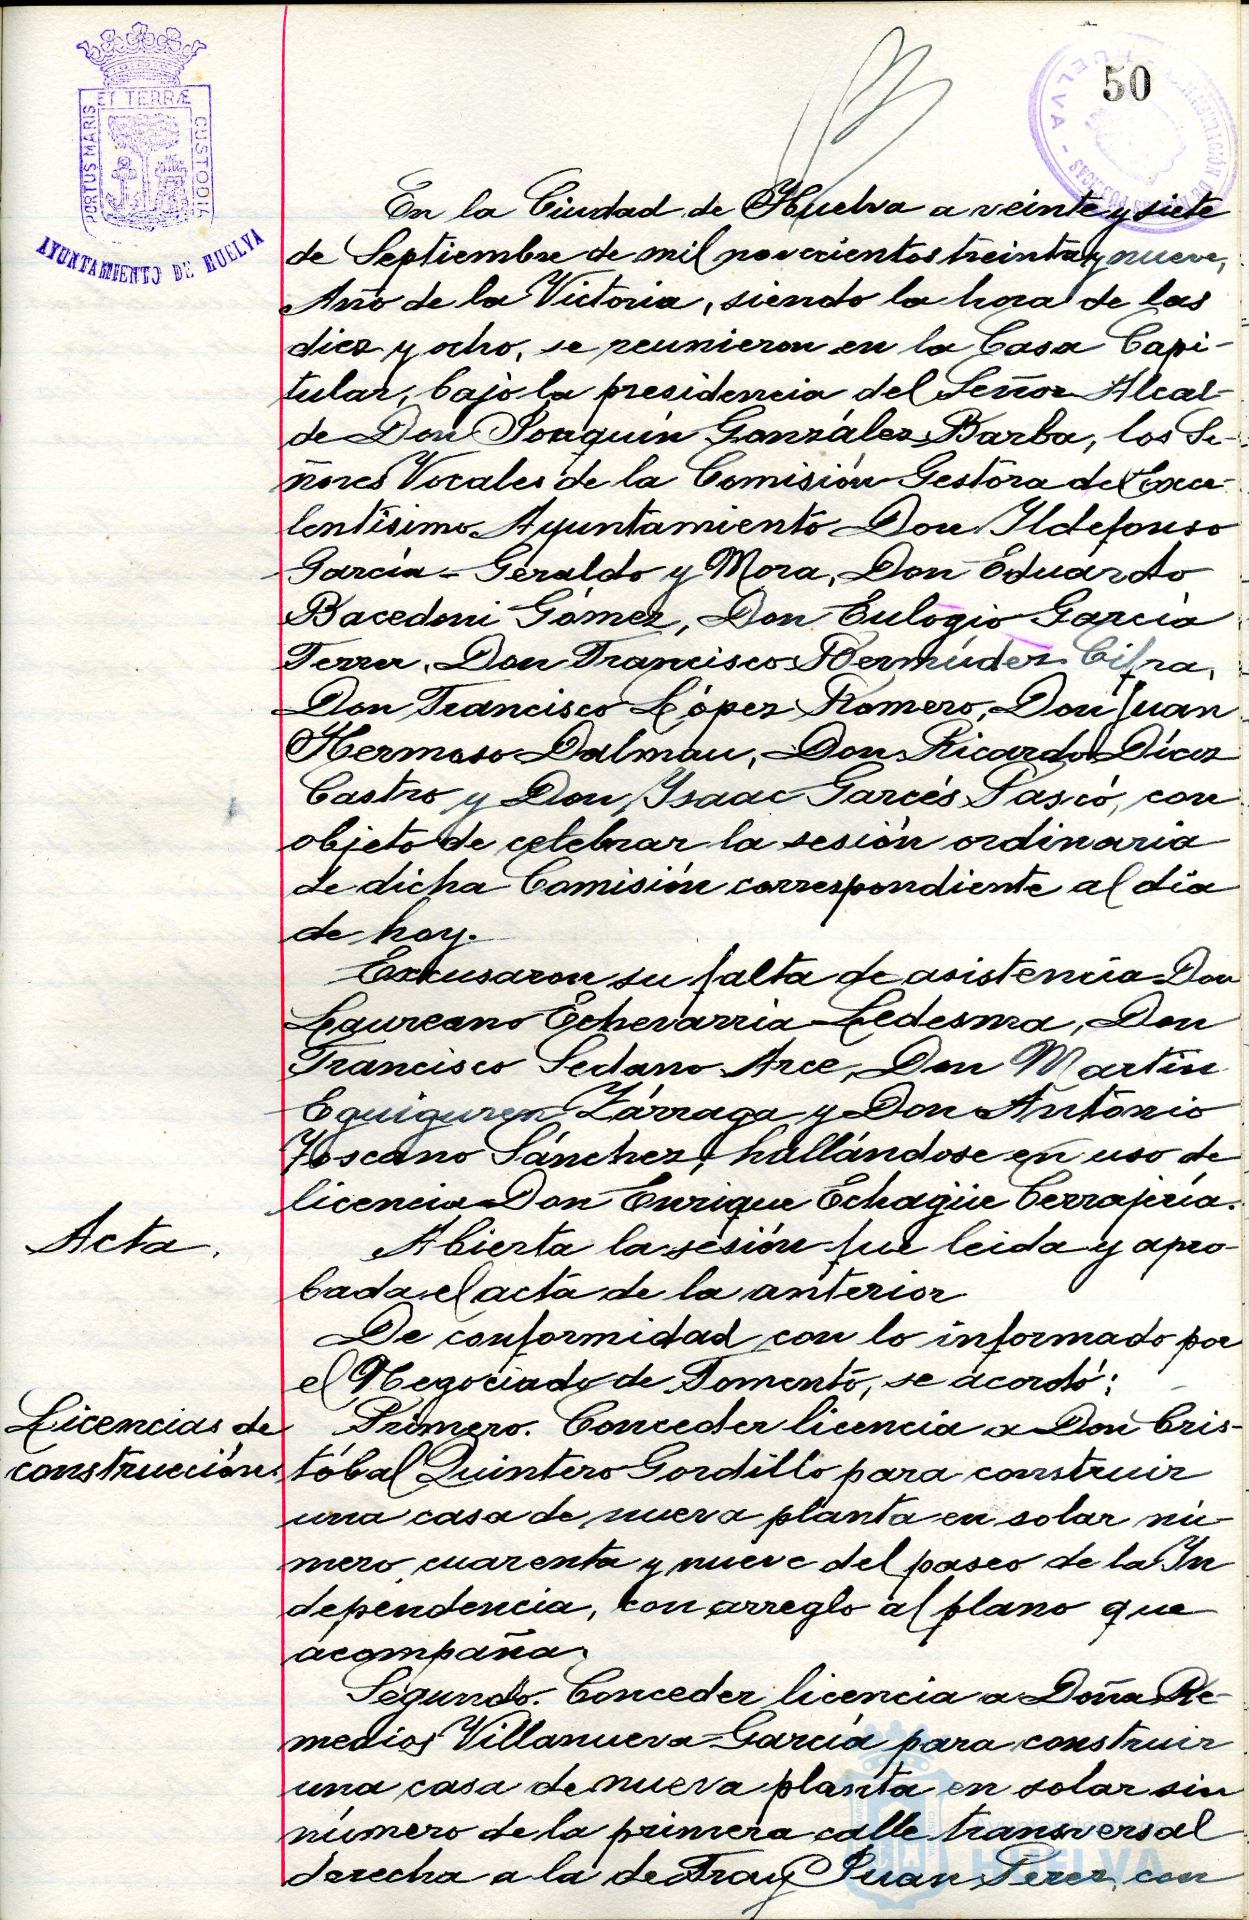 50
ET TERRÆ
PORTUS MARIS
CUSTODIA
AYUNTAMIENTO DE HUELVA
En la Ciudad de Huelva a veinte y siete
de Septiembre de mil novecientos treinta y nueve,
Año de la Victoria, siendo la hora de las
diez y ocho, se reunieron en la Casa Capi-
tular, bajo la presidencia del Señor Alcal-
de Don Joaquín González Barba, los Se-
ñores Vocales de la Comisión Gestora del Exce-
lentísimo Ayuntamiento Don Ildefonso
García-Geraldo y Mora, Don Eduardo
Bacedoni Gómez, Don Eulogio García
Ferrer, Don Francisco Bermúdez Cifra,
Don Francisco López Romero, Don Juan
Hermoso Dalmau, Don Ricardo Dícoz
Castro y Don Ysaac Garcés Pascó, con
objeto de celebrar la sesión ordinaria
de dicha Comisión correspondiente al día
de hoy.
Excusaron su falta de asistencia Don
Laureano Echevarria Ledesma, Don
Francisco Sedano Arce, Don Martín
Eguiguren Zárraga y Don Antonio
Toscano Sánchez, hallándose en uso de
licencia Don Enrique Echagüe Cerrajería.
Acta.
Abierta la sesión fue leida y apro-
bada el acta de la anterior
De conformidad con lo informado por
el Negociado de Fomento, se acordó:
Licencias de
construcción.
Primero. Conceder licencia a Don Cris-
tóbal Quintero Gordillo para construir
una casa de nueva planta en solar nú-
mero cuarenta y nueve del paseo de la In
dependencia, con arreglo al plano que
acompaña.
Segundo. Conceder licencia a Doña Re-
medios Villanueva García para construir
una casa de nueva planta en solar sin
número de la primera calle transversal
derecha a la de Fray Juan Pérez, con
HUELVA